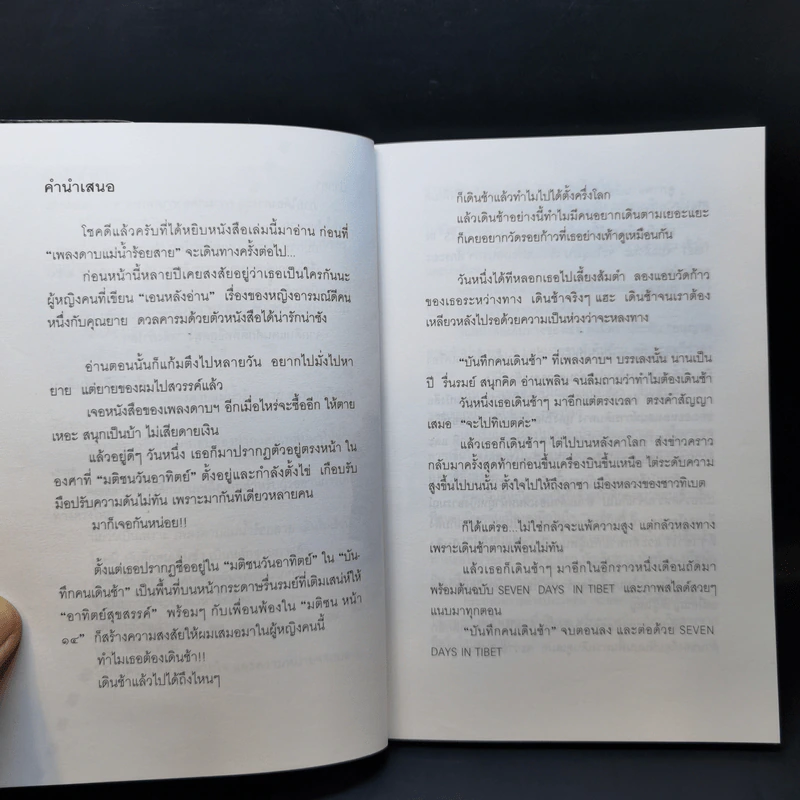 คำนำเสนอ
โชคดีแล้วครับที่ได้หยิบหนังสือเล่มนี้มาอ่าน ก่อนที่
“เพลงดาบแม่น้ำร้อยสาย” จะเดินทางครั้งต่อไป...
ก่อนหน้านี้หลายปีเคยสงสัยอยู่ว่าเธอเป็นใครกันนะ
ผู้หญิงคนที่เขียน “เอนหลังอ่าน” เรื่องของหญิงอารมณ์ดีคน
หนึ่งกับคุณยาย ดวลคารมด้วยตัวหนังสือได้น่ารักน่าชัง
อ่านตอนนั้นก็แก้มตึงไปหลายวัน อยากไปมั่งไปหา
ยาย แต่ยายของผมไปสวรรค์แล้ว
เจอหนังสือของเพลงดาบฯ อีกเมื่อไหร่จะซื้ออีก ให้ตาย
เหอะ สนุกเป็นบ้า ไม่เสียดายเงิน
แล้วอยู่ดีๆ วันหนึ่ง เธอก็มาปรากฏตัวอยู่ตรงหน้า ใน
องศาที่ “มติชนวันอาทิตย์” ตั้งอยู่และกำลังตั้งไข่ เกือบรับ
มือปรับความดันไม่ทัน เพราะมากันทีเดียวหลายคน
มาก็เจอกันหน่อย!!
ตั้งแต่เธอปรากฏชื่ออยู่ใน “มติชนวันอาทิตย์” ใน “บัน-
ทึกคนเดินช้า” เป็นพื้นที่บนหน้ากระดาษรื่นรมย์ที่เติมเสน่ห์ให้
“อาทิตย์สุขสรรค์” พร้อมๆ กับเพื่อนพ้องใน “มติชน หน้า
๑๔” ก็สร้างความสงสัยให้ผมเสมอมาในผู้หญิงคนนี้
ทำไมเธอต้องเดินช้า!!
เดินช้าแล้วไปได้ถึงไหนๆ
ก็เดินช้าแล้วทำไมไปได้ตั้งครึ่งโลก
แล้วเดินช้าอย่างนี้ทำไมมีคนอยากเดินตามเยอะแยะ
ก็เคยอยากวัดรอยก้าวที่เธอย่างเท้าดูเหมือนกัน
วันหนึ่งได้ทีหลอกเธอไปเลี้ยงส้มตำ ลองแอบวัดก้าว
ของเธอระหว่างทาง เดินช้าจริงๆ แฮะ เดินช้าจนเราต้อง
เหลียวหลังไปรอด้วยความเป็นห่วงว่าจะหลงทาง
“บันทึกคนเดินช้า” ที่เพลงดาบฯ บรรเลงนั้น นานเป็น
ปี รื่นรมย์ สนุกคิด อ่านเพลิน จนลืมถามว่าทำไมต้องเดินช้า
วันหนึ่งเธอเดินช้าๆ มาอีกแต่ตรงเวลา ตรงคำสัญญา
เสมอ “จะไปทิเบตค่ะ”
แล้วเธอก็เดินช้าๆ ไต่ไปบนหลังคาโลก ส่งข่าวคราว
กลับมาครั้งสุดท้ายก่อนขึ้นเครื่องบินขึ้นเหนือ ไต่ระดับความ
สูงขึ้นไปบนนั้น ตั้งใจไปให้ถึงลาซา เมืองหลวงของชาวทิเบต
ก็ได้แต่รอ...ไม่ใช่กลัวจะแพ้ความสูง แต่กลัวหลงทาง
เพราะเดินช้าตามเพื่อนไม่ทัน
แล้วเธอก็เดินช้าๆ มาอีกในอีกราวหนึ่งเดือนถัดมา
พร้อมต้นฉบับ SEVEN DAYS IN TIBET และภาพสไลด์สวยๆ
แนบมาทุกตอน
“บันทึกคนเดินช้า” จบตอนลง และต่อด้วย SEVEN
DAYS IN TIBET